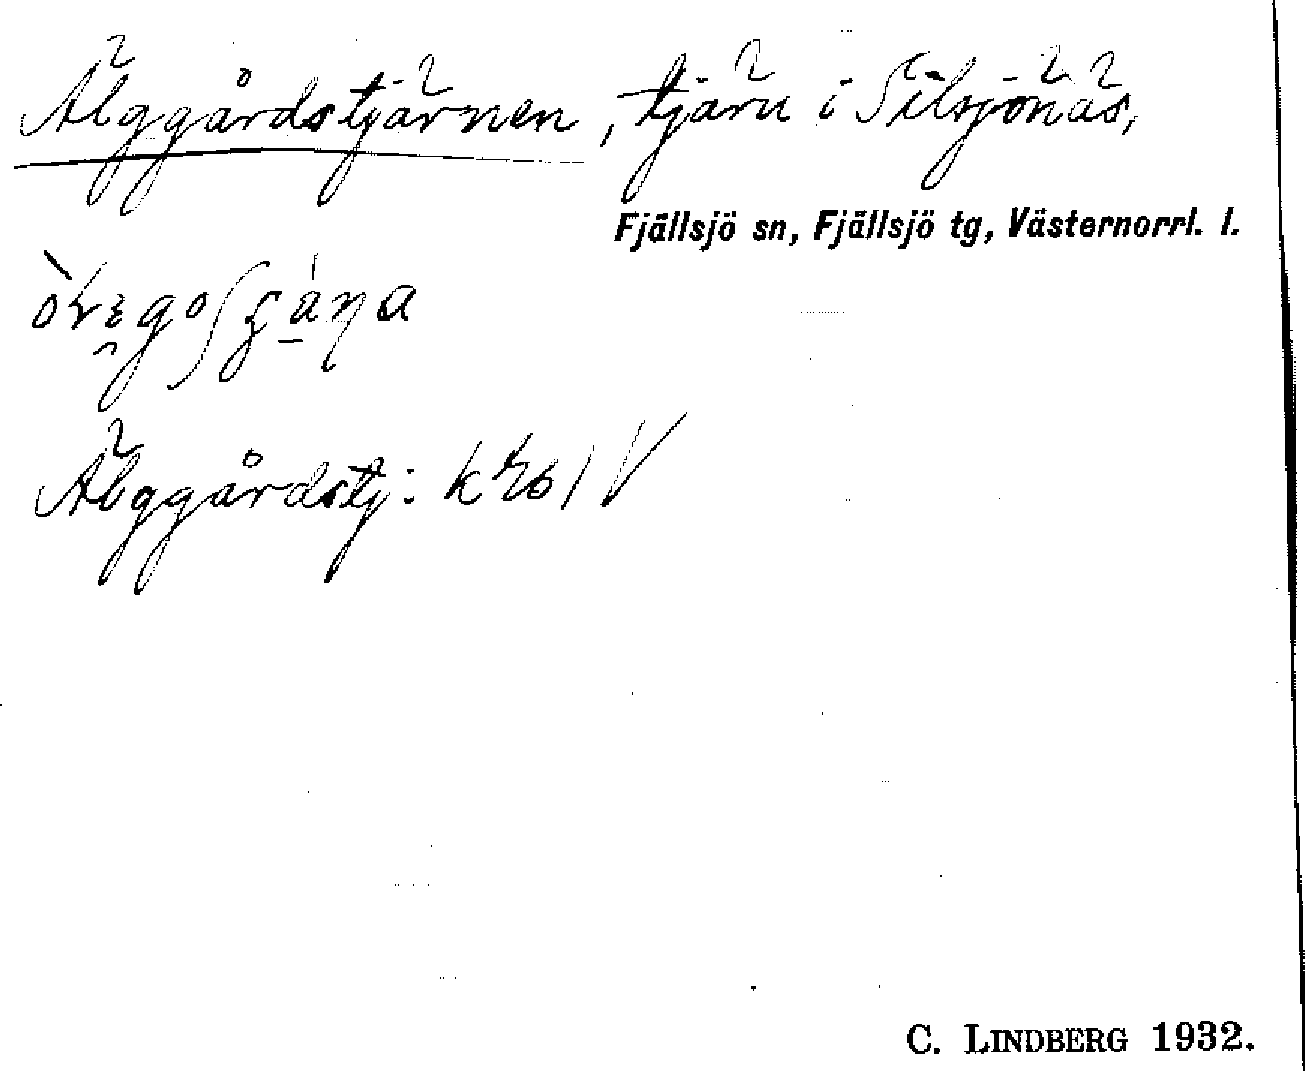 Älggårdstjärnen, tjärn i Silsjönäs,
Fjällsjö sn, Fjällsjö tg, Västernorrl. l.
Älggårdstj:
C. LINDBERG 1932.